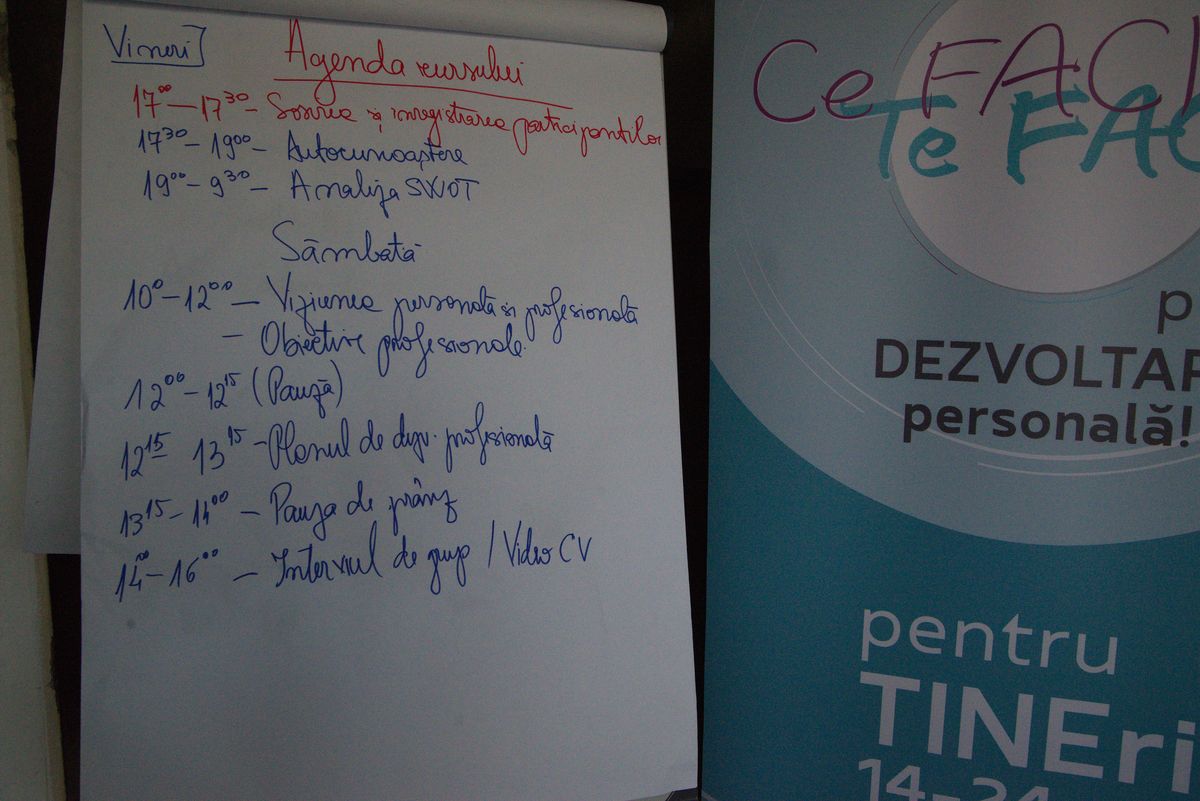 Vineri
Agenda cursului
17⁰⁰ — 17³⁰ - Sosirea și înregistrarea participanților
17³⁰ - 19⁰⁰ - Autocunoaștere
19⁰⁰ - 9³⁰ - Analiza SWOT
Sâmbătă
10⁰ - 12⁰⁰ - Viziunea personală și profesională
- Obiective profesionale
12⁰⁰ - 12¹⁵ (Pauză)
12¹⁵ 13¹⁵ - Planul de dezv. profesională
13¹⁵ - 14⁰⁰ - Pauza de prânz
14⁰⁰ - 16⁰⁰ - Interviul de grup / Video CV
Ce FACI
Te FAC
p
DEZVOLTAR
personală!
pentru
TINEri
14-24